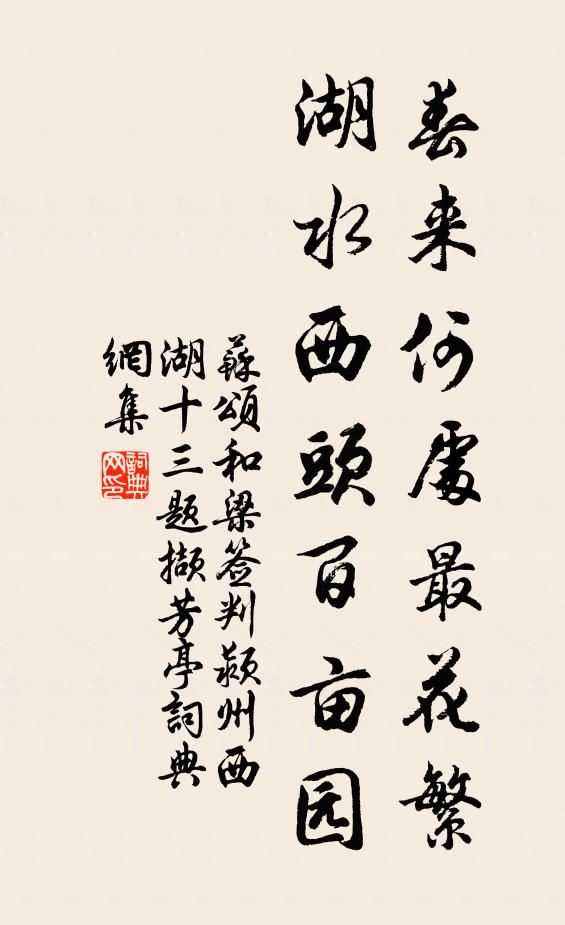 春来何處最花繁
湖水西頭百亩园
蘇頌和梁签判颍州西
湖十三题撷芳亭詞典
網集
詞典
网印